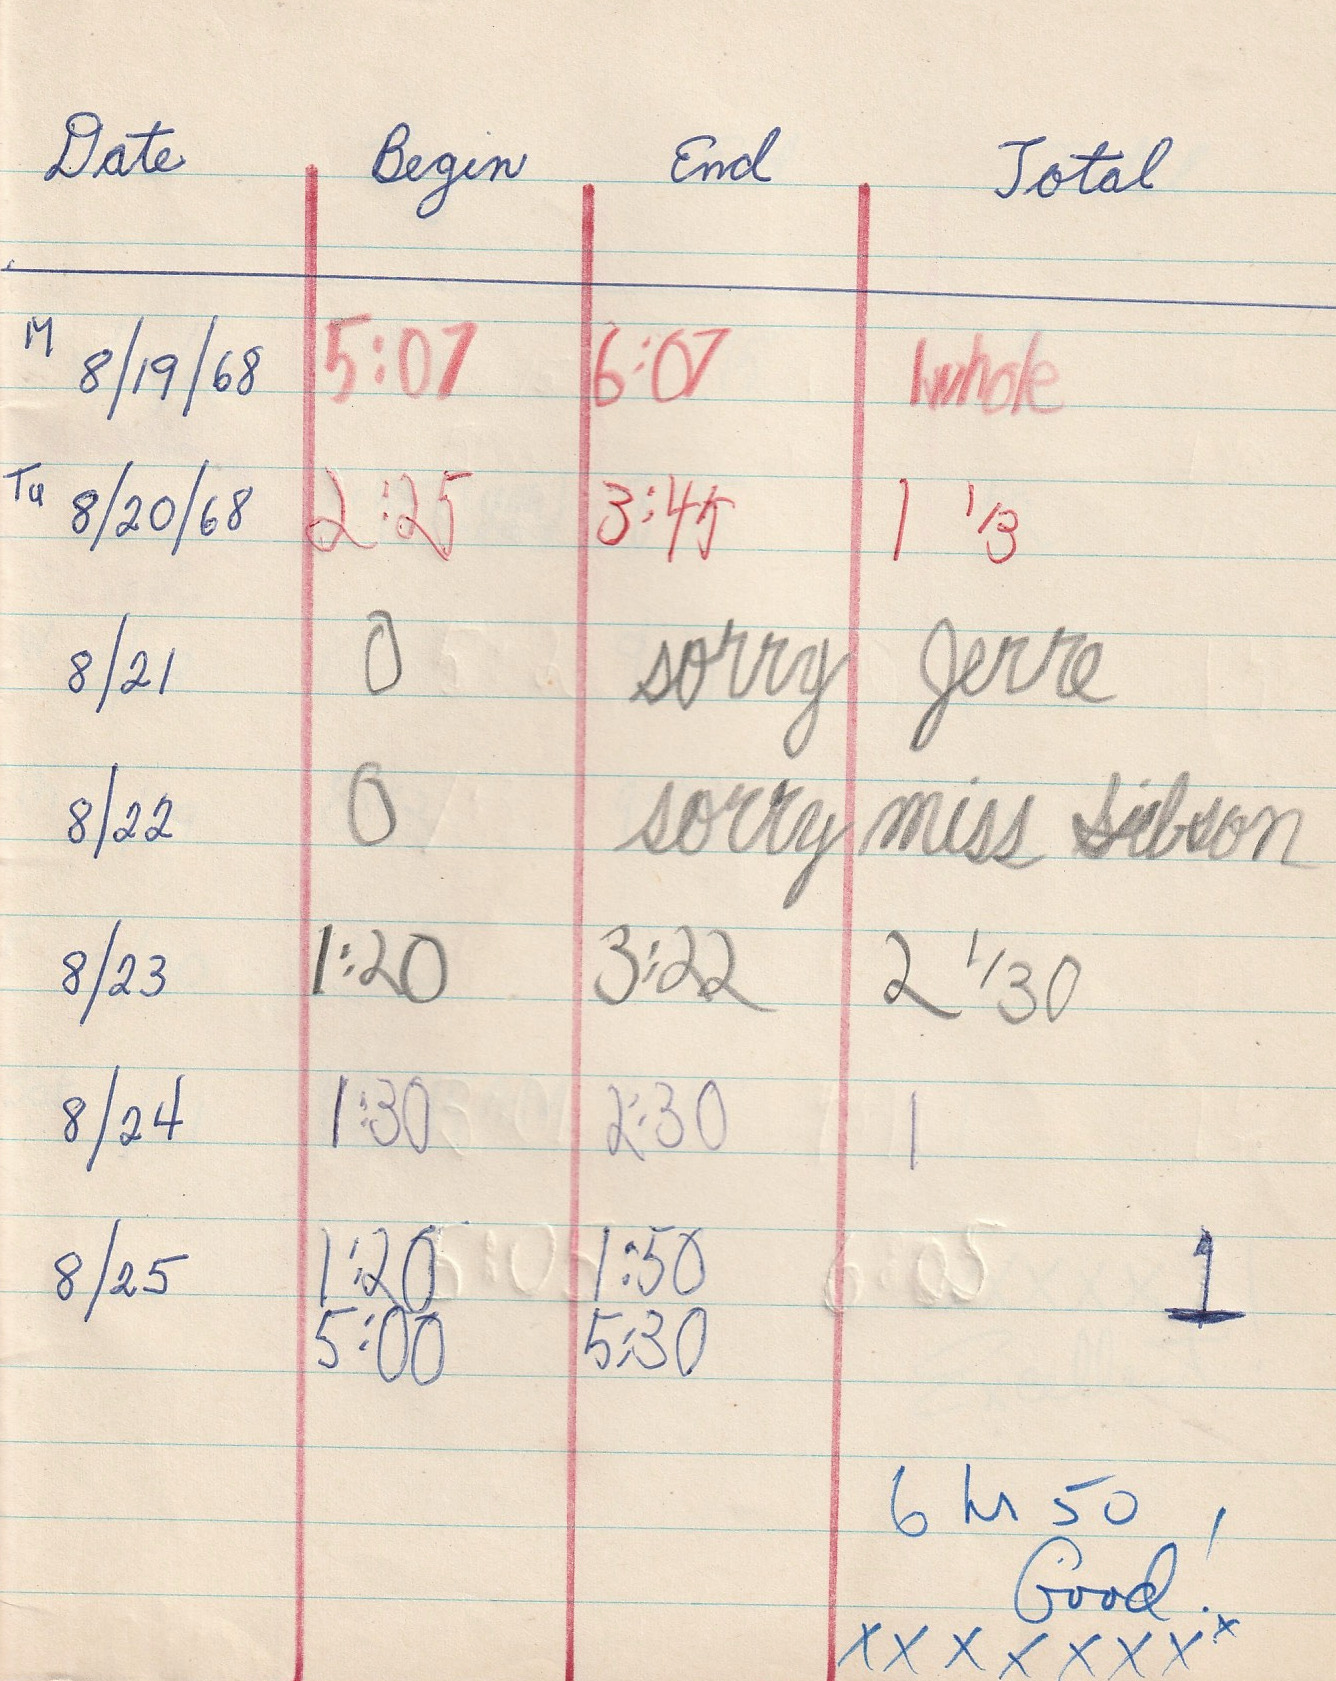 Date Begin End Total
M 8/19/68 5:07 6:07 1 whole
Tu 8/20/68 2:25 3:45 1 1/3
8/21 0 sorry Jerre
8/22 0 sorry miss Sibson
8/23 1:20 3:22 2 1/30
8/24 1:30 2:30 1
8/25 1:20 1:50 1
5:00 5:30
6 hr 50
Good!
xxxxxxxx